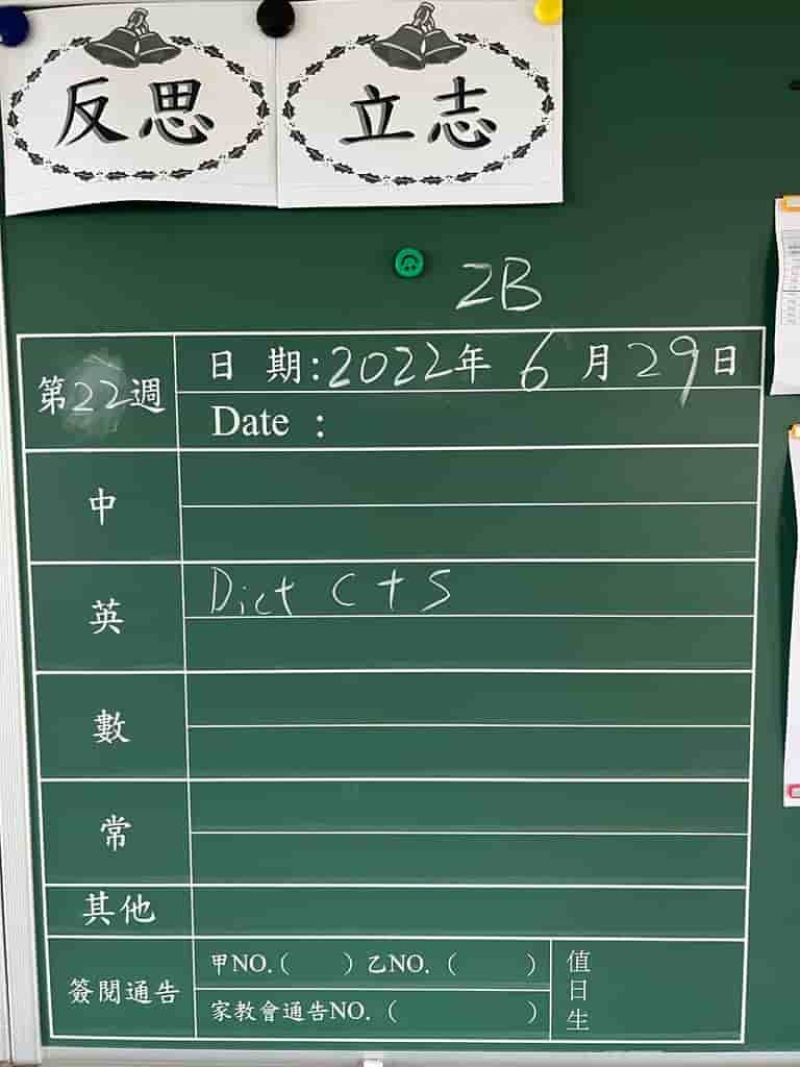 反思
立志
2B
第22週
日 期:2022年 6月29日
Date :
中
英
Dict C+S
數
常
其他
簽閱通告
甲NO.( ) 乙NO. ( )
家教會通告NO. ( )
值日生